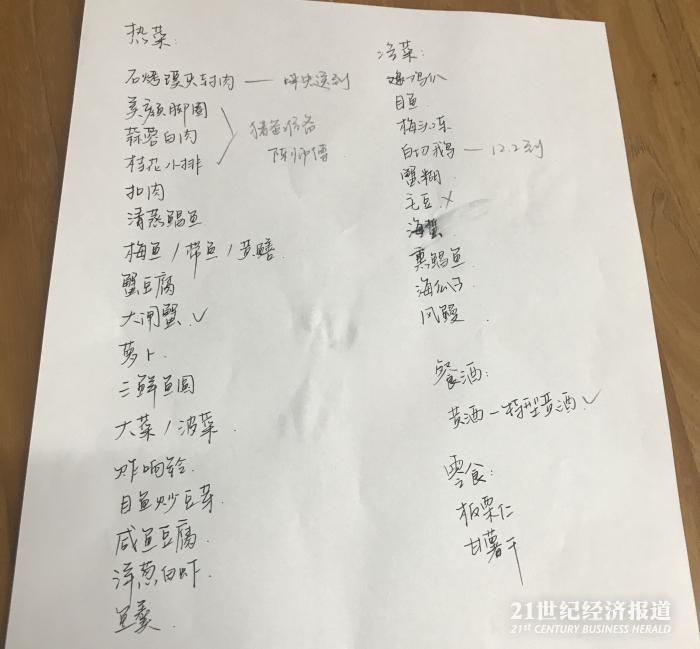 热菜:
石烤馒头封肉 — 哞央送到
美颜脚圈
蒜蓉白肉
桂花小排
陈师傅
扣肉
清蒸鲳鱼
梅鱼/带鱼/黄鳝
蟹豆腐
大闸蟹.✓
萝卜.
三鲜鱼圆
大菜/菠菜.
炸响铃.
目鱼炒豆芽.
咸鱼豆腐.
洋葱白虾.
鱼羹.
冷菜:
目鱼
白切鹅 — 12.2到
蟹糊
毛豆.X
海蜇
熏鲳鱼
海瓜子
风鳗
餐酒:
黄酒-特型黄酒.✓
零食:
板栗仁
甘薯干
21世纪经济报道
21ST CENTURY BUSINESS HERALD